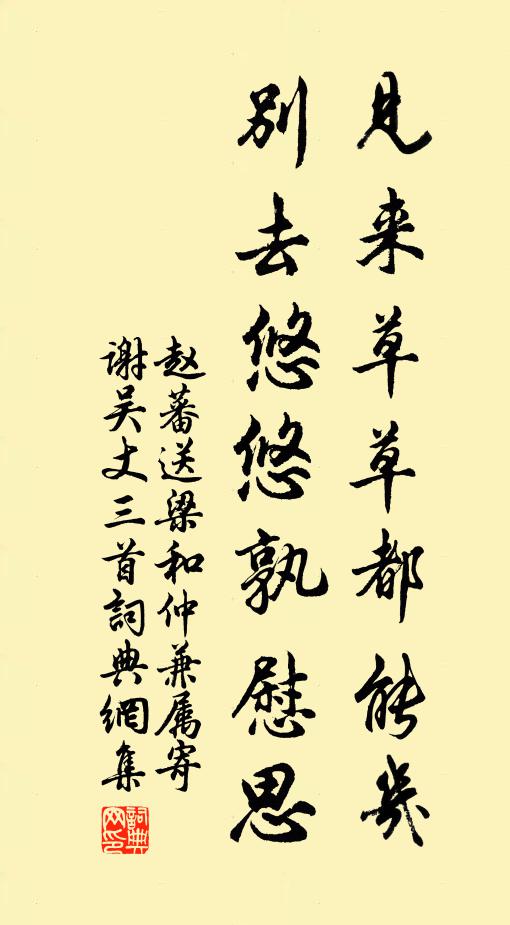 見来草草都能幾
別去悠悠孰慰思
赵蕃送梁和仲兼属寄
谢吴丈三首詞典網集
詞典
网印